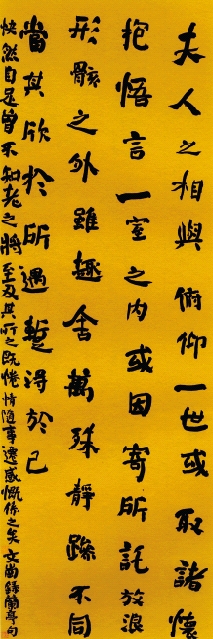 夫人之相與俯仰一世或取諸懷
抱悟言一室之內或因寄所託放浪
形骸之外雖趣舍萬殊靜躁不同
當其欣於所遇暫得於己
快然自足曾不知老之將至及其所之既惓情隨事遷感慨係之矣 文尚錄蘭亭句